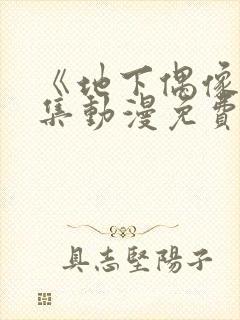 《地下偶像
集動漫免費
具志堅陽子